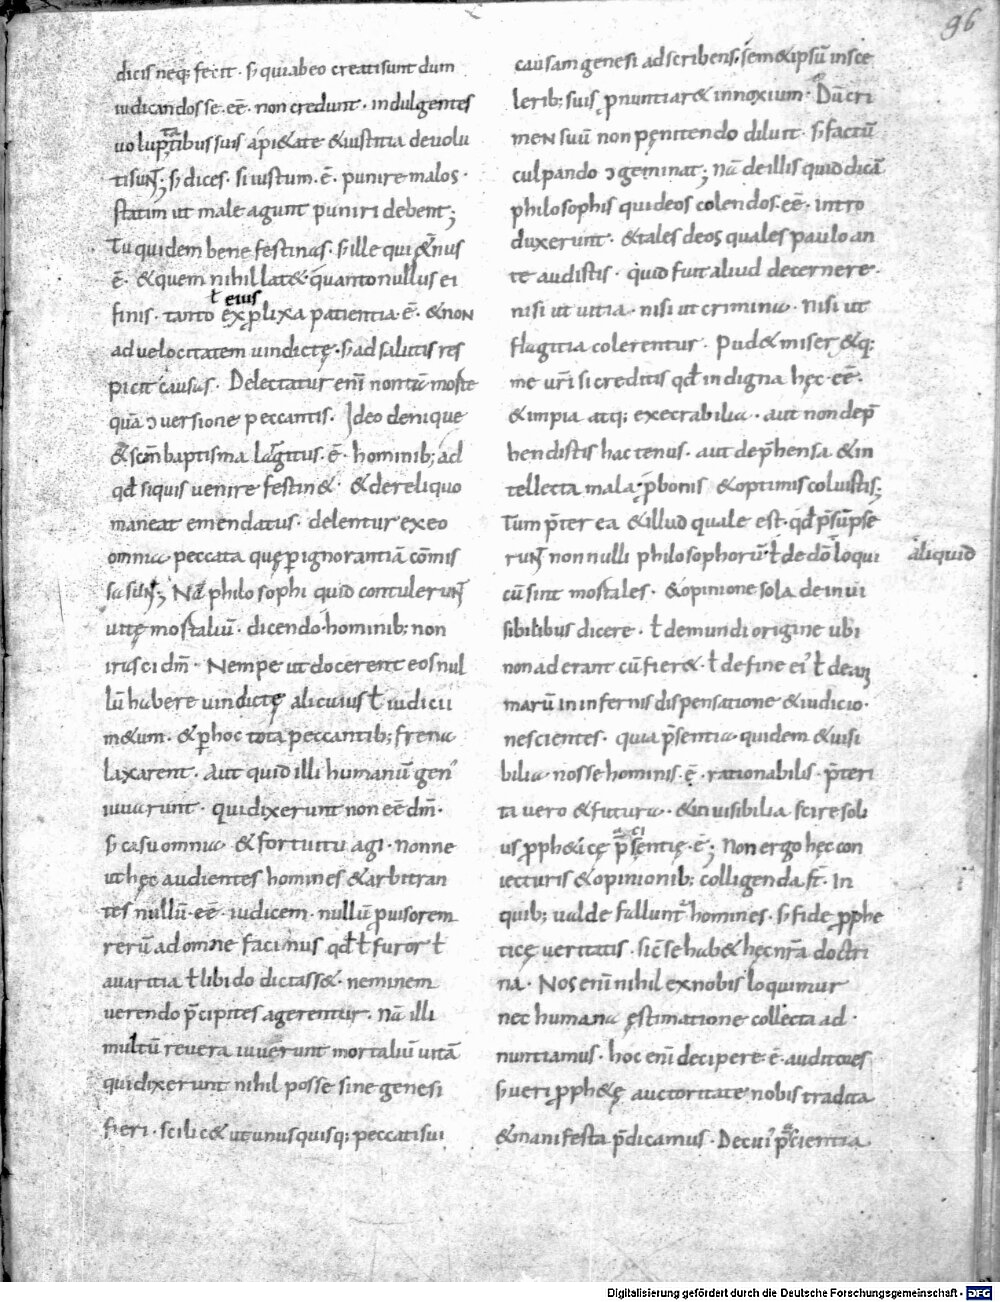 96
dicis neq; fecit · s; quia beo creati sunt dum
iudicandos se · eē · non credunt · indulgentes
voluptatibus suis a pi&ate &iustitia devolu
ti sunt; s; dices · si iustum · ē · punire malos ·
statim ut male agunt puniri debent;
Tu quidem bene festinas · s; ille qui &nus
ē · & quem nihil lat& quanto nullus ei
ł eius
finis · tanto ex plixa patientia · ē · & non
ad velocitatem vindictę · s; ad salutis res
picit causas · Delectatur eni non tā morte
quā ɔversione peccantis · Ideo denique
& scm baptisma largitus · ē · hominib; ad
qđ siquis venire festin& · & de reliquo
maneat emendatus · delentur ex eo
omnia peccata quę p ignorantiā cōmis
sa sunt; Nā philosophi quid contulerunt
vitę mortaliū · dicendo hominib; non
irasci dm̄ · Nempe ut docerent eos nul
lū habere vindictę alicuius ł iudicii
m&um · & p hoc tota peccantib; frena
laxarent · Aut quid illi humanū gen'
iuvarunt · qui dixerunt non eē dm̄ ·
s; casu omnia & fortuitu agi · nonne
ut hęc audientes homines & arbitran
tes nullū · eē · iudicem · nullū puisorem
rerū ad omne facinus qđ ł furor ł
avaritia ł libido dictass& · neminem
verendo p̄cipites agerentur · Nā illi
multū revera iuverunt mortaliū vitā
qui dixerunt nihil posse sine genesi
fieri · scilic& ut unus quisq; peccati sui
causam genesi adscribens · sem&ipsū in sce
lerib; suis pnuntiar& innoxium · Dū cri
men suū non pęnitendo diluit · s; factū
culpando ɔgeminat; nā de illis quid dicā
philosophis qui deos colendos · eē · intro
duxerunt · & tales deos quales paulo an
te audistis · quid fuit aliud decernere ·
nisi ut vitia · nisi ut crimina · nisi ut
flagitia colerentur · Pud& miser&q;
me vr̄i si creditis qđ indigna hęc · eē ·
& impia atq; execrabilia · aut non dep̄
hendistis hactenus · aut dep̄hensa & in
tellecta mala · p bonis & optimis coluistis;
Tum p̄ter ea & illud quale est · qđ p̄sūpse
runt non nulli philosophorū · ł de dō loqui
aliquid
cū sint mortales · & opinione sola de invi
sibilibus dicere · ł de mundi origine ubi
non aderant cū fier& · ł de fine ei' ł de ani
marū in infernis dispensatione & iudicio ·
nescientes · quia p̄sentia quidem & visi
bilia nosse hominis · ē · rationabilis · p̄teri
ta vero & futura · & invisibilia scire soli
us pph&icę p̄scientię · ē; Non ergo hęc con
iecturis & opinionib; colligenda st̄ · In
quib; valde fallunt homines · s; fide pphe
ticę veritatis · sic̄ se hab& hęc nr̄a doctri
na · Nos eni nihil ex nobis loquimur
nec humana ęstimatione collecta ad ·
nuntiamus · hoc eni decipere · ē · auditores
s; veri pph&ę auctoritate nobis tradita
& manifesta p̄dicamus · De cui' p̄scientia
Digitalisierung gefördert durch die Deutsche Forschungsgemeinschaft - DFG